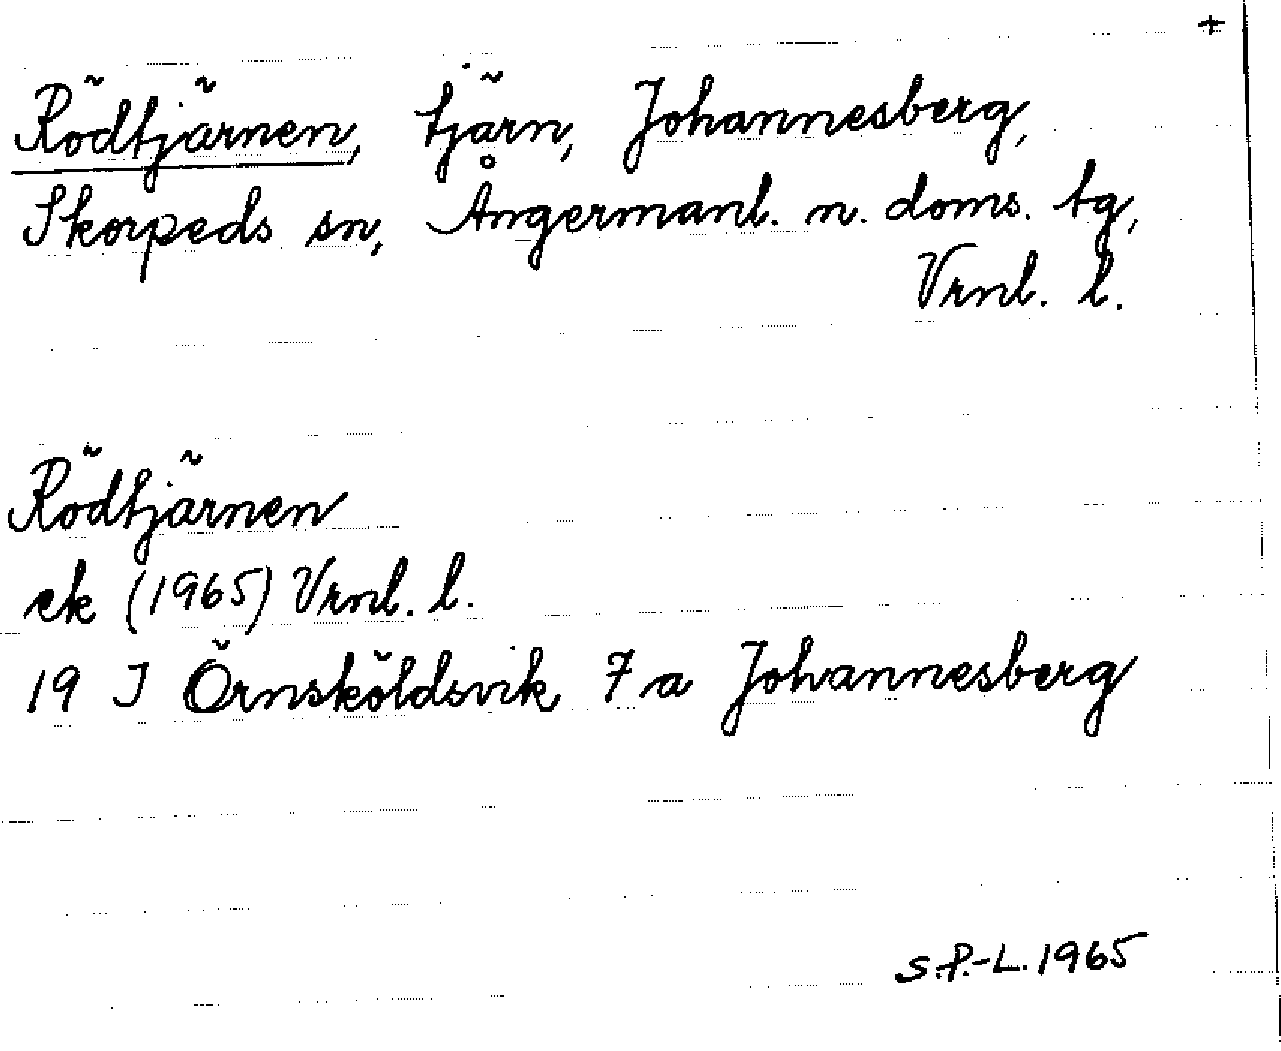 +
Rödtjärnen, tjärn, Johannesberg,
Skorpeds sn, Ångermanl. n. doms. tg,
Vrnl. l.
Rödtjärnen
ek (1965) Vrnl. l.
19 J Örnsköldsvik 7 a Johannesberg
S.P.-L. 1965